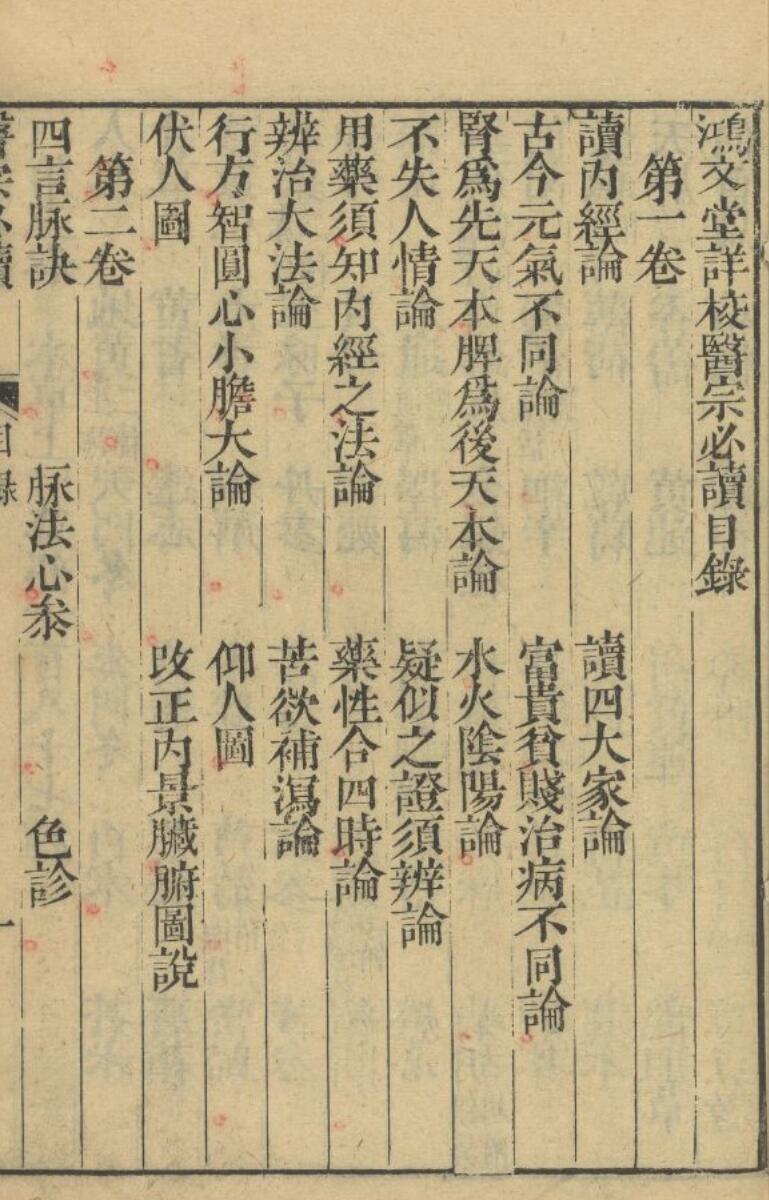 鴻文堂詳校醫宗必讀目錄
第一卷
讀內經論　讀四大家論
古今元氣不同論　富貴貧賤治病不同論
腎爲先天本脾爲後天本論　水火陰陽論
不失人情論　疑似之證須辨論
用藥須知內經之法論　藥性合四時論
辨治大法論　苦欲補瀉論
行方智圓心小膽大論　仰人圖
伏人圖　改正內景臟腑圖說
第二卷
四言脉訣　脉法心叅　色診
目錄　一